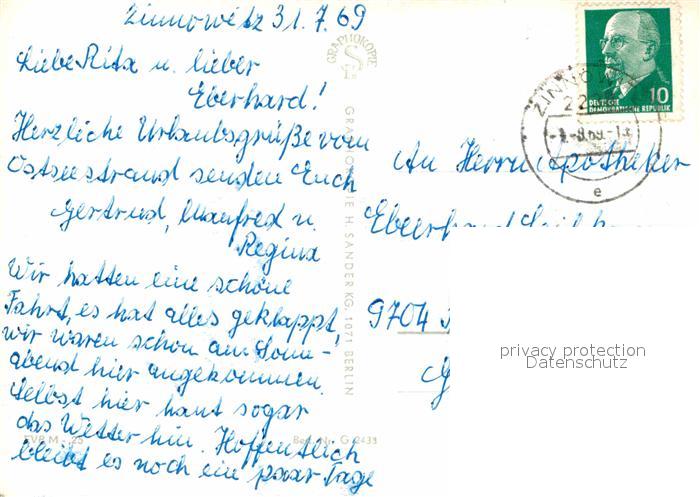 Zinnowitz 31.7.69
Liebe Rita u. lieber
Eberhard!
Herzliche Urlaubsgrüße vom
Ostseestrand senden Euch
Gertrud, Manfred u.
Regina
Wir hatten eine schöne
Fahrt, es hat alles geklappt,
wir waren schon am Sonn-
abend hier angekommen.
Selbst hier haut sogar
das Wetter hin. Hoffentlich
bleibt es noch ein paar Tage
GRAPHOKOPIE
GRAPHOKOPIE H. SANDER KG, 1071 BERLIN
Best.-Nr. G 2438
10
DEUTSCHE
DEMOKRATISCHE REPUBLIK
ZINNOWITZ
22
e
An Herrn Apotheker
Eberhard
9704
privacy protection
Datenschutz